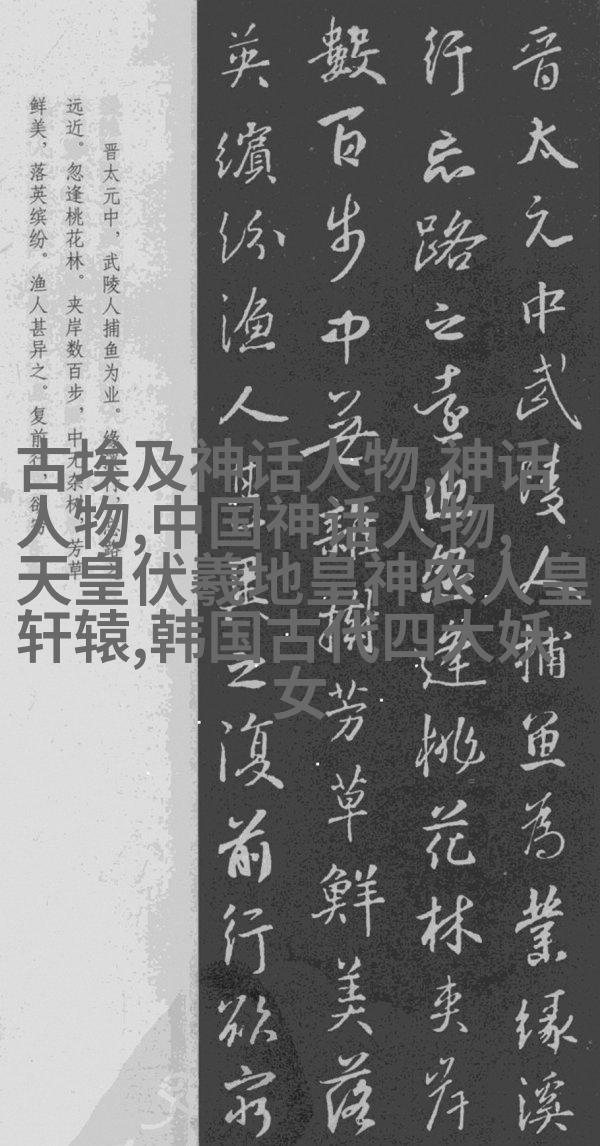 晋太元中武陵人捕魚為業緣溪
行忘路之遠近忽逢桃花林夾岸
數百步中無雜樹芳草鮮美落
英繽紛漁人甚異之復前行欲窮
晋太元中，武陵人捕鱼为业。缘溪行，忘路之
远近。忽逢桃花林。夹岸数百步，中无杂树，芳草
鲜美，落英缤纷。渔人甚异之。复前行，欲
古埃及神话人物,神话
人物,中国神话人物,
天皇伏羲地皇神农人皇
轩辕,韩国古代四大妖
女